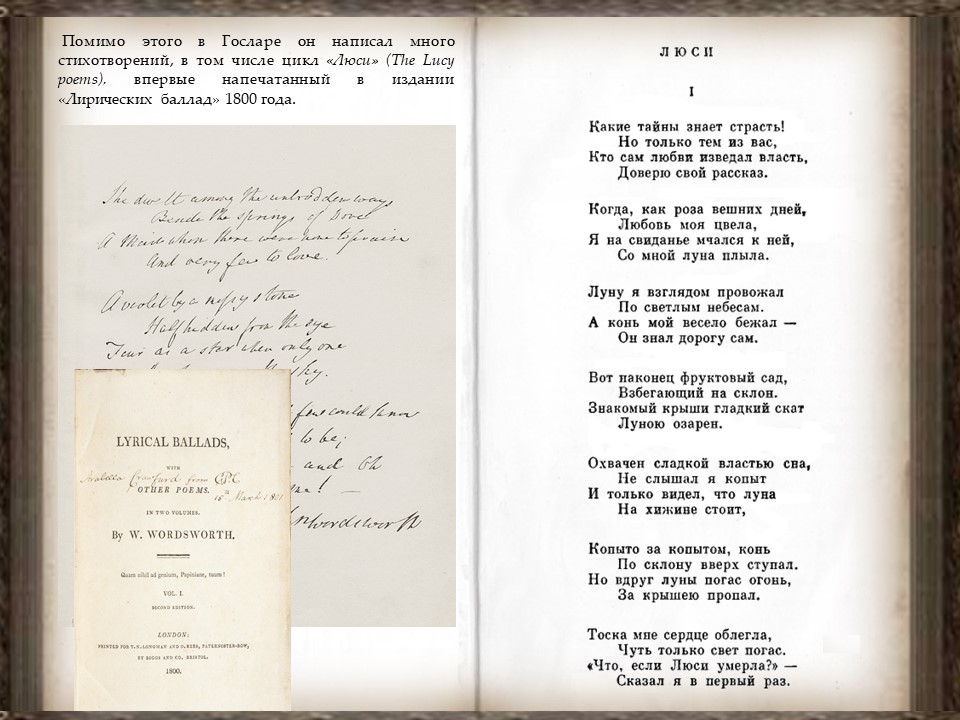 Помимо этого в Госларе он написал много
стихотворений, в том числе цикл «Люси» (The Lucy
poems), впервые напечатанный в издании
«Лирических баллад» 1800 года.
She dwelt among the untrodden ways
Beside the springs of Dove
A Maid whom there were none to praise
And very few to love.
A violet by a mossy stone
Half hidden from the eye
Fair as a star when only one
sky.
few could know
to be;
and Oh
Wordsworth
LYRICAL BALLADS,
WITH
Arabella Crawfurd from
OTHER POEMS.
15th March 1801
IN TWO VOLUMES.
By W. WORDSWORTH.
Quam nihil ad genium, Papiniane, tuum!
VOL. I.
SECOND EDITION.
LONDON:
PRINTED FOR T.N. LONGMAN AND O. REES, PATERNOSTER-ROW,
BY BIGGS AND CO. BRISTOL.
1800.
ЛЮСИ
I
Какие тайны знает страсть!
Но только тем из вас,
Кто сам любви изведал власть,
Доверю свой рассказ.
Когда, как роза вешних дней,
Любовь моя цвела,
Я на свиданье мчался к ней,
Со мной луна плыла.
Луну я взглядом провожал
По светлым небесам.
А конь мой весело бежал —
Он знал дорогу сам.
Вот наконец фруктовый сад,
Взбегающий на склон.
Знакомый крыши гладкий скат
Луною озарен.
Охвачен сладкой властью сна,
Не слышал я копыт
И только видел, что луна
На хижине стоит,
Копыто за копытом, конь
По склону вверх ступал.
Но вдруг луны погас огонь,
За крышею пропал.
Тоска мне сердце облегла,
Чуть только свет погас.
«Что, если Люси умерла?» —
Сказал я в первый раз.